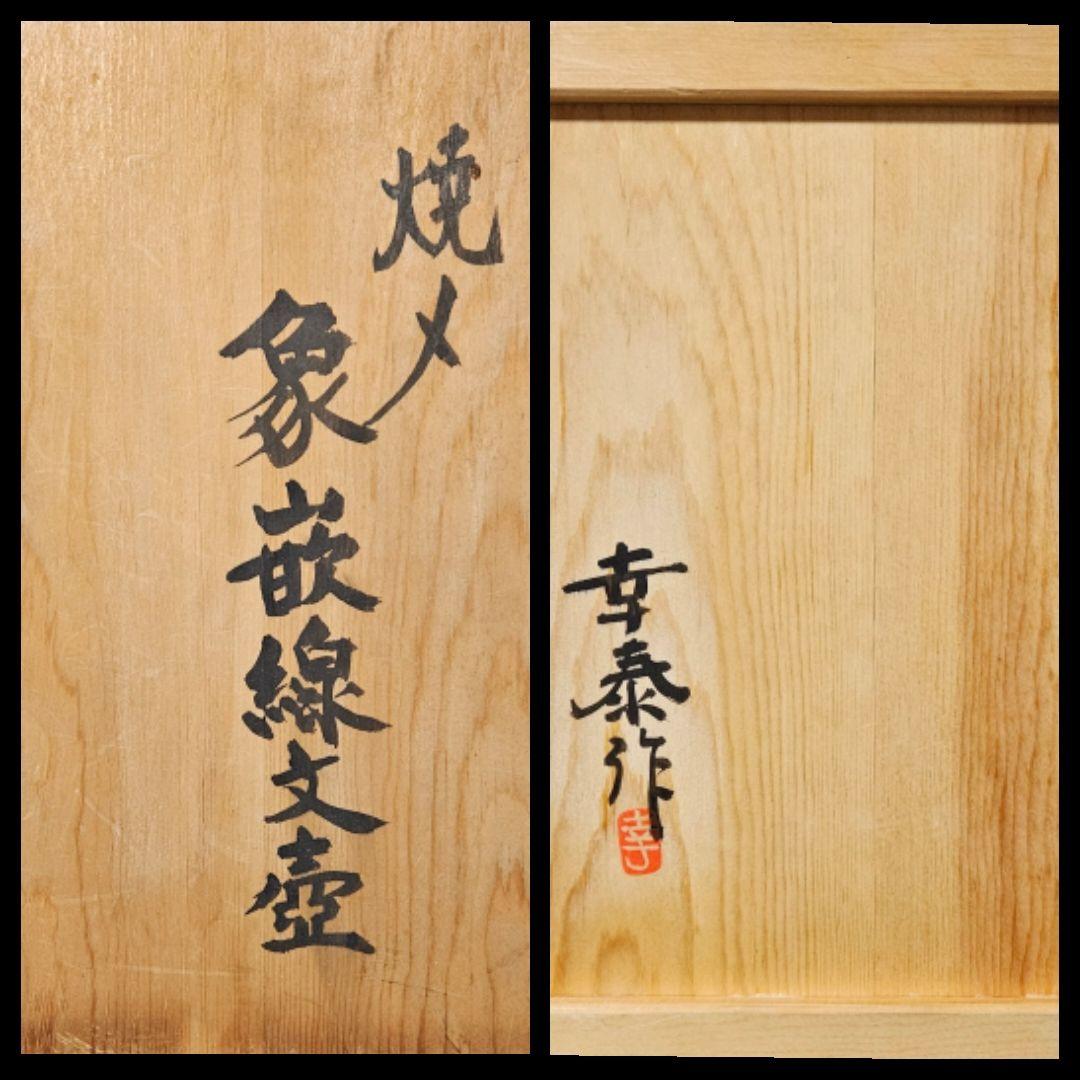 焼〆
象嵌線文壺
幸泰作
幸